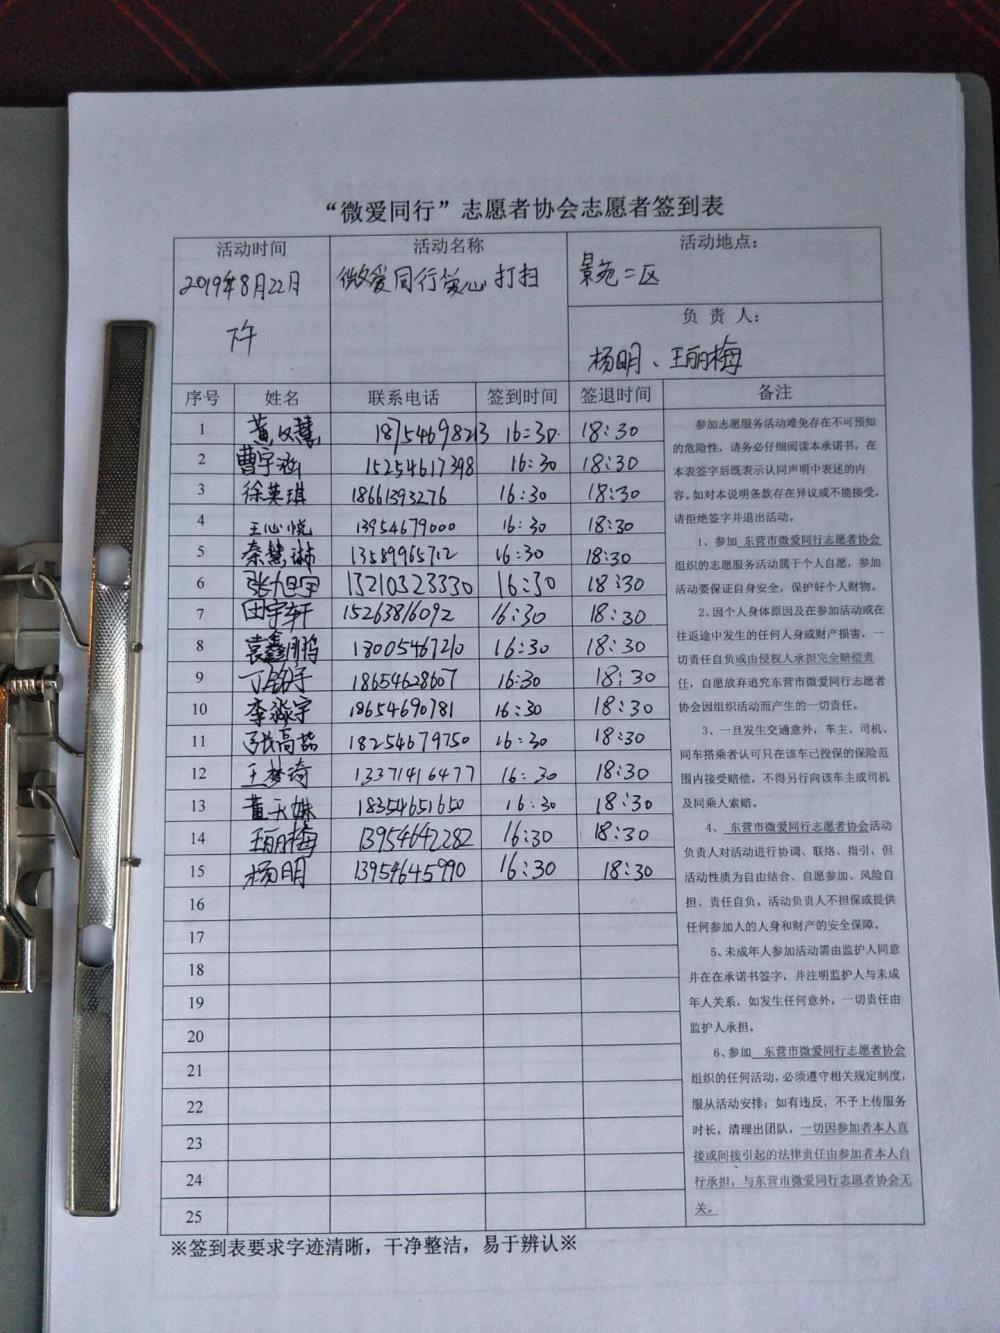 “微爱同行”志愿者协会志愿者签到表
活动时间 活动名称 活动地点：
2019年8月22日 微爱同行爱心打扫 景苑二区
下午
负 责 人：
杨明、王丽梅
序号 姓名 联系电话 签到时间 签退时间 备注
1 黄文慧 18754698213 16:30 18:30
2 曹宇涵 15254617398 16:30 18:30
3 徐英琪 18661393276 16:30 18:30
4 王心悦 13954679000 16:30 18:30
5 秦慧琳 13589965702 16:30 18:30
6 13210323330 16:30 18:30
7 田宇轩 15263816092 16:30 18:30
8 袁鑫鹏 18005467210 16:30 18:30
9 丁铭宇 18654628607 16:30 18:30
10 李淼宇 18654690781 16:30 18:30
11 张高茹 18254679750 16:30 18:30
12 王梦琦 13371416477 16:30 18:30
13 黄天姝 18354651650 16:30 18:30
14 王丽梅 13954642282 16:30 18:30
15 杨明 13954645990 16:30 18:30
16
17
18
19
20
21
22
23
24
25
参加志愿服务活动难免存在不可预知
的危险性，请务必仔细阅读本承诺书，在
本表签字后既表示认同声明中表述的内
容。如对本说明条款存在异议或不能接受，
请拒绝签字并退出活动。
1、参加 东营市微爱同行志愿者协会
组织的志愿服务活动属于个人自愿，参加
活动要保证自身安全，保护好个人财物。
2、因个人身体原因及在参加活动或在
往返途中发生的任何人身或财产损害，一
切责任自负或由侵权人承担完全赔偿责
任，自愿放弃追究东营市微爱同行志愿者
协会因组织活动而产生的一切责任。
3、一旦发生交通意外，车主、司机、
同车搭乘者认可只在该车已投保的保险范
围内接受赔偿，不得另行向该车主或司机
及同乘人索赔。
4、 东营市微爱同行志愿者协会活动
负责人对活动进行协调、联络、指引，但
活动性质为自由结合、自愿参加、风险自
担、责任自负。活动负责人不担保或提供
任何参加人的人身和财产的安全保障。
5、未成年人参加活动需由监护人同意
并在在承诺书签字，并注明监护人与未成
年人关系，如发生任何意外，一切责任由
监护人承担。
6、参加 东营市微爱同行志愿者协会
组织的任何活动，必须遵守相关规定制度，
服从活动安排；如有违反，不予上传服务
时长，清理出团队，一切因参加者本人直
接或间接引起的法律责任由参加者本人自
行承担，与东营市微爱同行志愿者协会无
关。
※签到表要求字迹清晰，干净整洁，易于辨认※